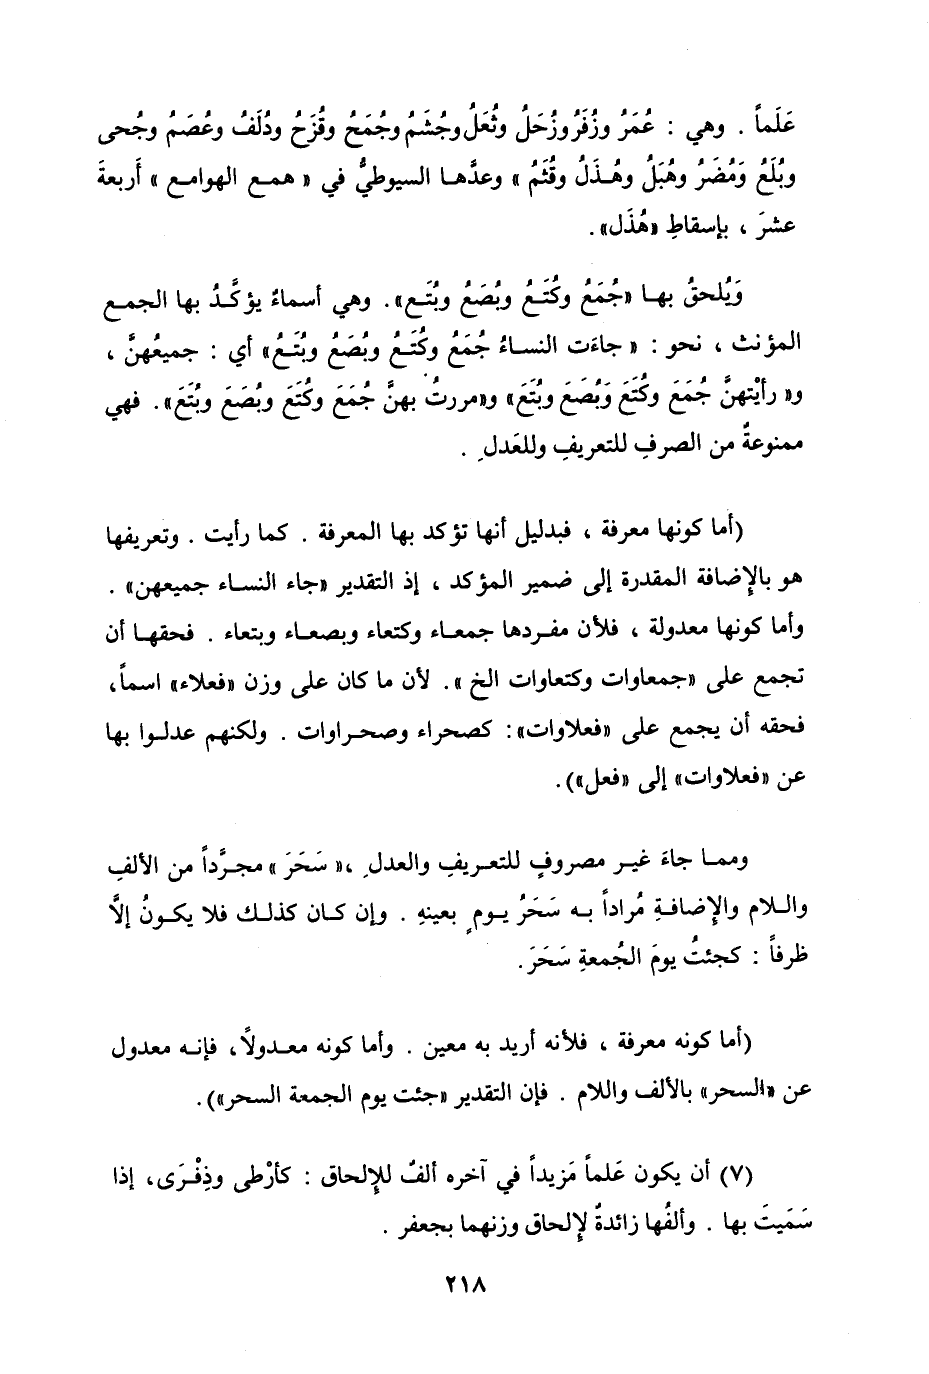 عَلَماً . وهي : عُمَرُ وزُفَرُ وزُحَلُ وثُعَلُ وجُشَمُ وجُمَحُ وقُزَحُ ودُلَفُ وعُصَمُ وجُحى
وبُلَعُ وَمُضَرُ وهُبَلُ وهُذَلُ وقُثَمُ » وعدَّها السيوطيُّ في « همع الهوامع » أَربعةَ
عشرَ ، بإسقاطِ «هُذَل».
وَيُلحقُ بها «جُمَعُ وكُتَعُ وبُصَعُ وبُتَع». وهي أسماءٌ يؤكَّدُ بها الجمع
المؤنث ، نحو : « جاءَت النساءُ جُمَعُ وكُتَعُ وبُصَعُ وبُتَعُ» أي : جميعُهنَّ ،
و« رأيْتهنَّ جُمَعَ وكُتَعَ وَبُصَعَ وبُتَعَ» و«مررتُ بهنَّ جُمَعَ وكُتَعَ وبُصَعَ وبُتَعَ». فهي
ممنوعةٌ من الصرفِ للتعريفِ وللعَدلِ .
(أما كونها معرفة ، فبدليل أنها تؤكد بها المعرفة . كما رأيت . وتعريفها
هو بالإِضافة المقدرة إلى ضمير المؤكد ، إذ التقدير «جاء النساء جميعهن» .
وأما كونها معدولة ، فلأن مفردها جمعاء وكتعاء وبصعاء وبتعاء . فحقها أن
تجمع على «جمعاوات وكتعاوات الخ ». لأن ما كان على وزن «فعلاء» اسماً،
فحقه أن يجمع على «فعلاوات»: كصحراء وصحراوات . ولكنهم عدلوا بها
عن «فعلاوات» إلى «فعل»).
ومما جاءَ غير مصروفٍ للتعريفِ والعدلِ ،« سَحَرَ » مجرَّداً من الألفِ
واللام والإِضافةِ مُراداً به سَحَرُ يومٍ بعينهِ . وإن كان كذلك فلا يكونُ إلَّا
ظرفاً : كجئتُ يومَ الجُمعةِ سَحَرَ.
(أما كونه معرفة ، فلأنه أريد به معين . وأما كونه معدولًا، فإنه معدول
عن «السحر» بالألف واللام . فإن التقدير «جئت يوم الجمعة السحر»).
(٧) أن يكون عَلماً مَزيداً في آخره ألفٌ للإِلحاق : كأرْطى وذِفْرَى، إذا
سَمَيتَ بها . وألفُها زائدةٌ لإِلحاق وزنهما بجعفر .
٢١٨